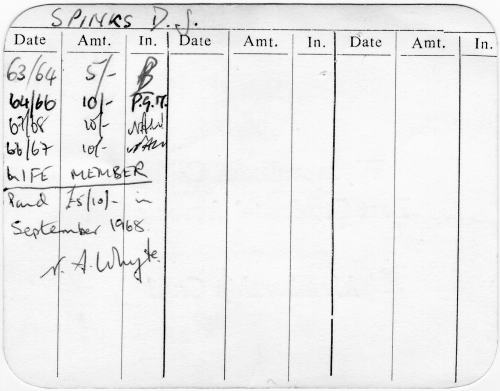 SPINKS D. J.
Date Amt. In. Date Amt. In. Date Amt. In.
63/64 5/- B
64/66 10/- P.G.T.
67/68 10/- NAW
66/67 10/- NAW
LIFE MEMBER
Paid £5/10/- in
September 1968
N. A. Whyte.